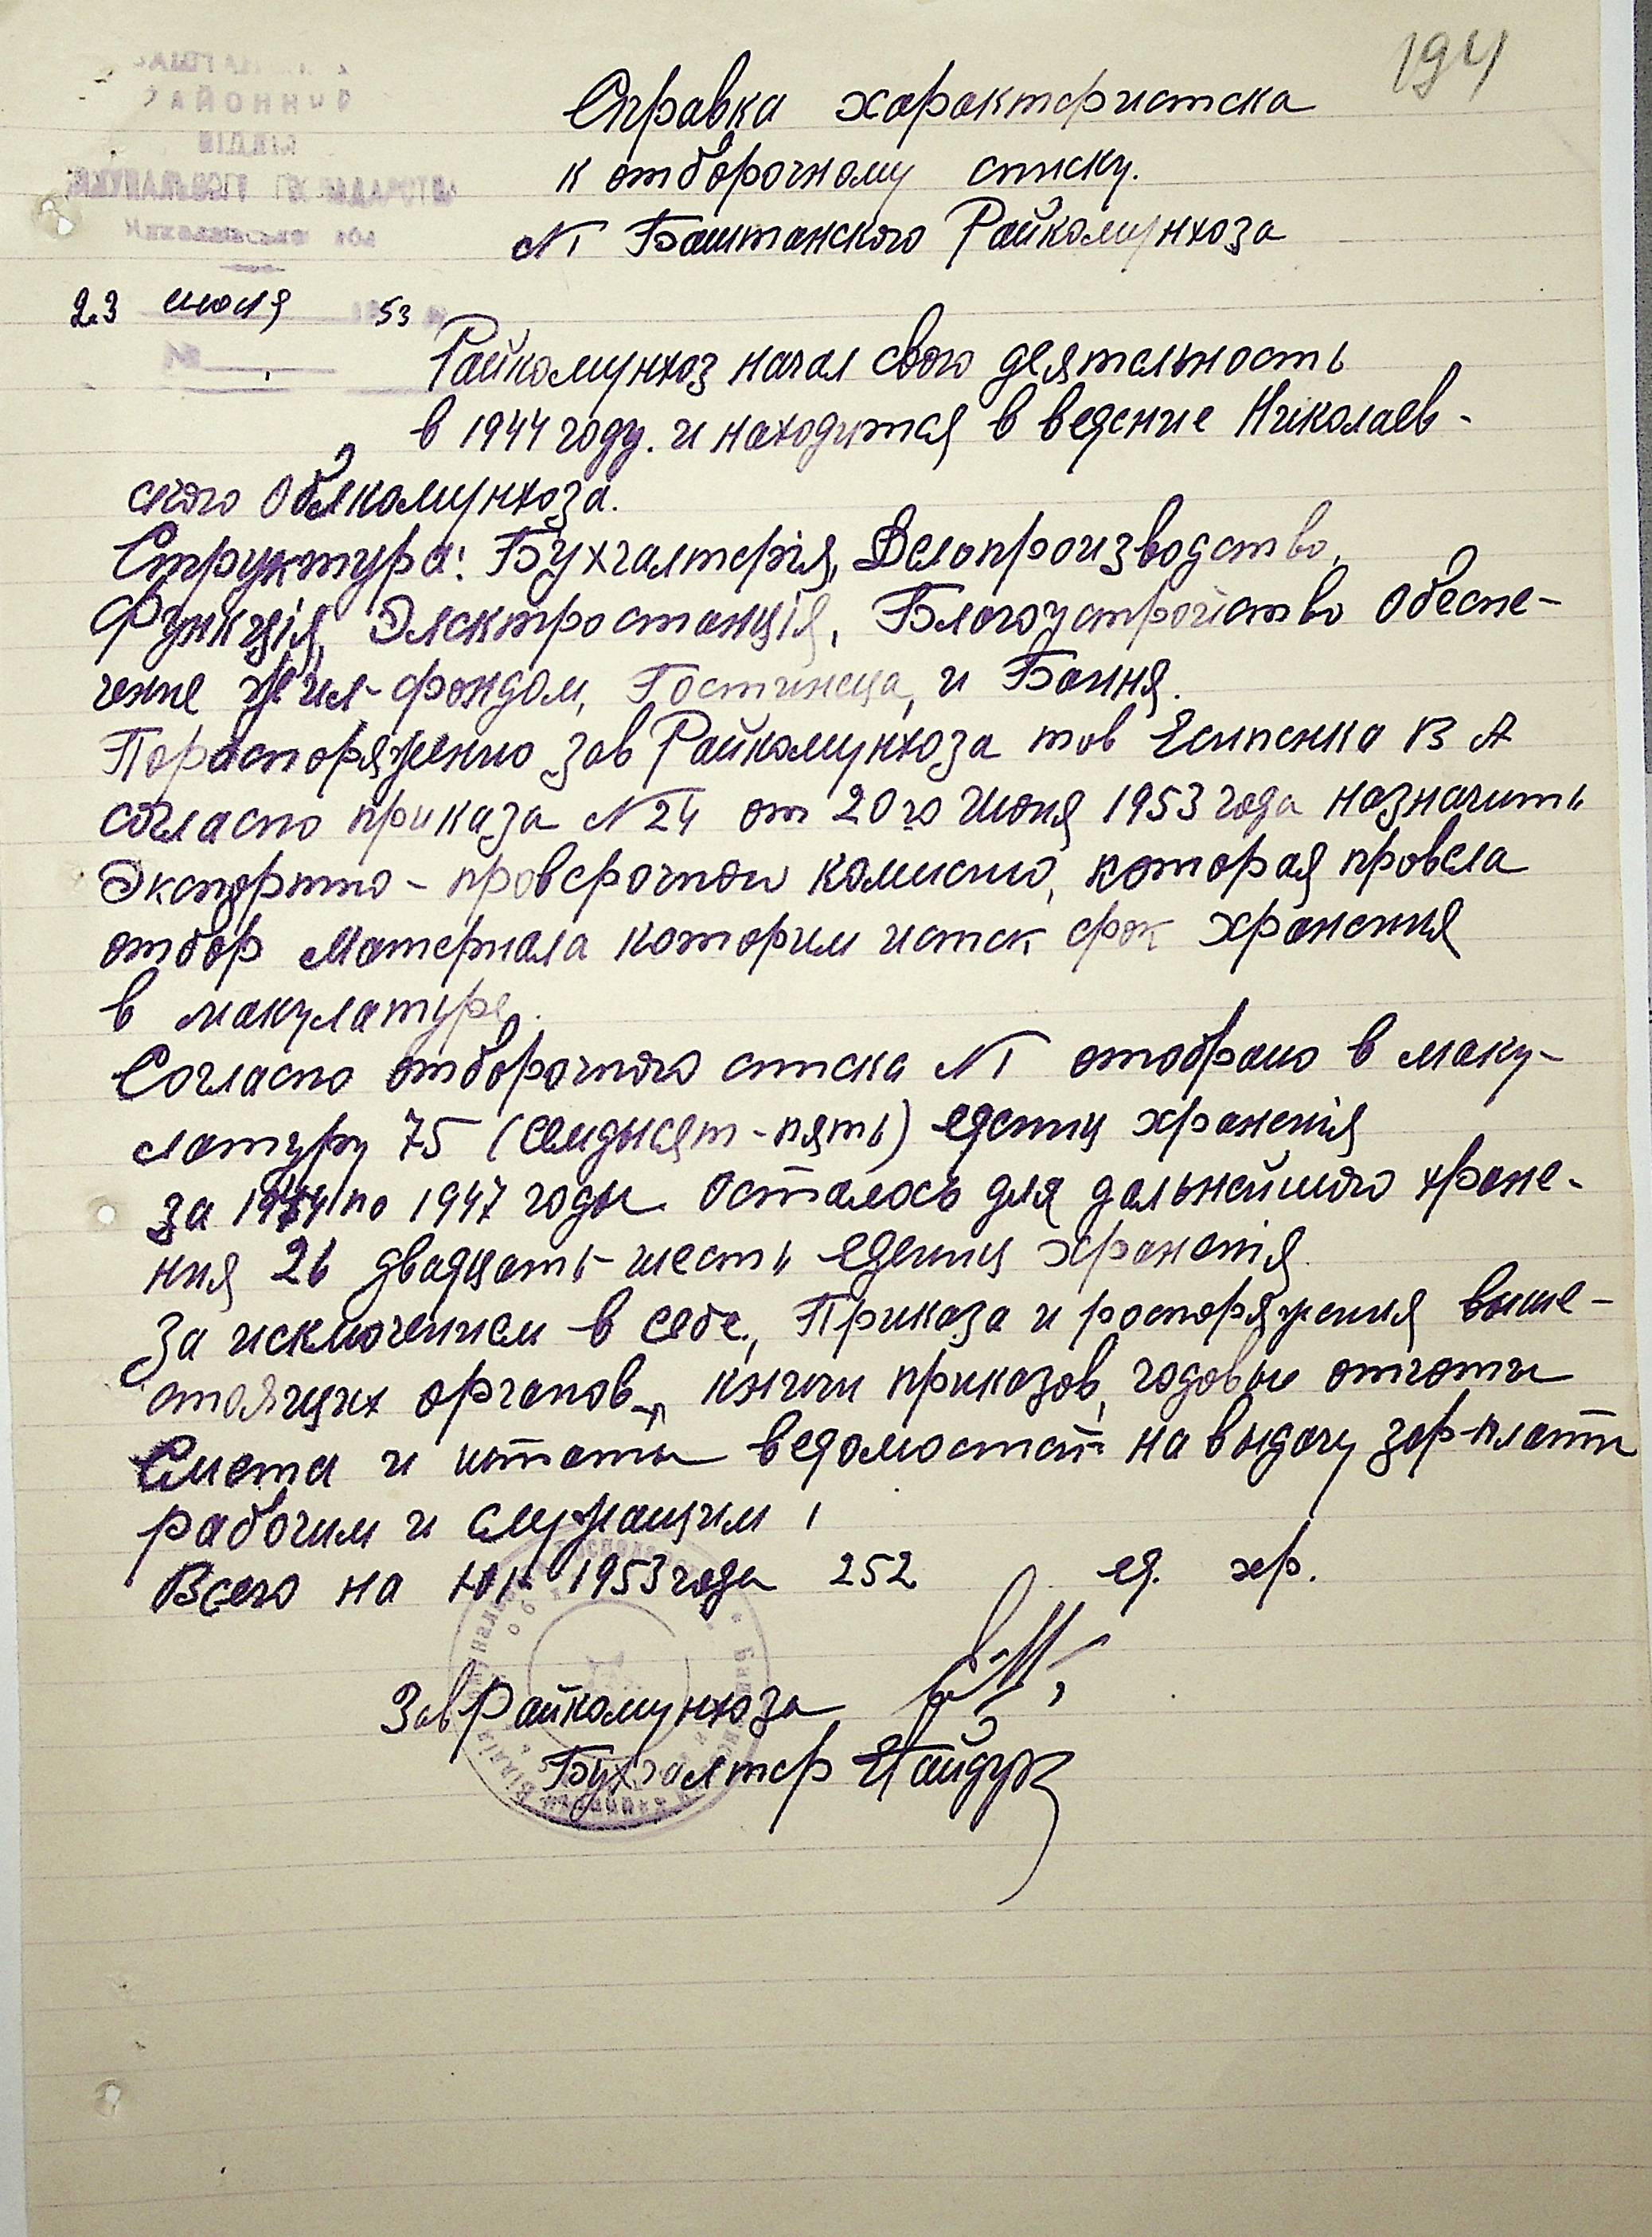 194
РАЙОННИЙ
ВІДДІЛ
Справка характеристска
к отборочному списку.
N1 Баштанского Райкомунхоза
23 июля 53
№
Райкомунхоз начал свою деятельность
в 1944 году. и находится в ведение Николаев-
ского Облкомунхоза.
Структура: Бухгалтерія, Делопроизводство,
Функція, Электростанція, Благоустройство Обеспе-
чение жил-фондом, Гостинеца, и Бання.
Пораспоряжению зав Райкомунхоза тов Есипенка В А
согласно приказа N24 от 20го Июня 1953 года назначить
Экспертно-проверочною комисию, которая провела
отбор Материала которим истек срок хранения
в макулатуре.
Согласно отборочного списка N1 отобрано в маку-
латуру 75 (семдысят-пять) едениц хранения
за 1944 по 1947 годы. Осталось для дальнейшого хране-
ния 26 двадцать-шесть едениц хранения.
За исключением в себе, Приказа и роспоряжения выше-
стоящих органов, книги приказов, годовые отчоты
Смета и штаты ведомостей на выдачу зар-платы
рабочим и служащим,
Всего на 1953 года 252 ед. хр.
Зав Райкомунхоза
Бухгалтер